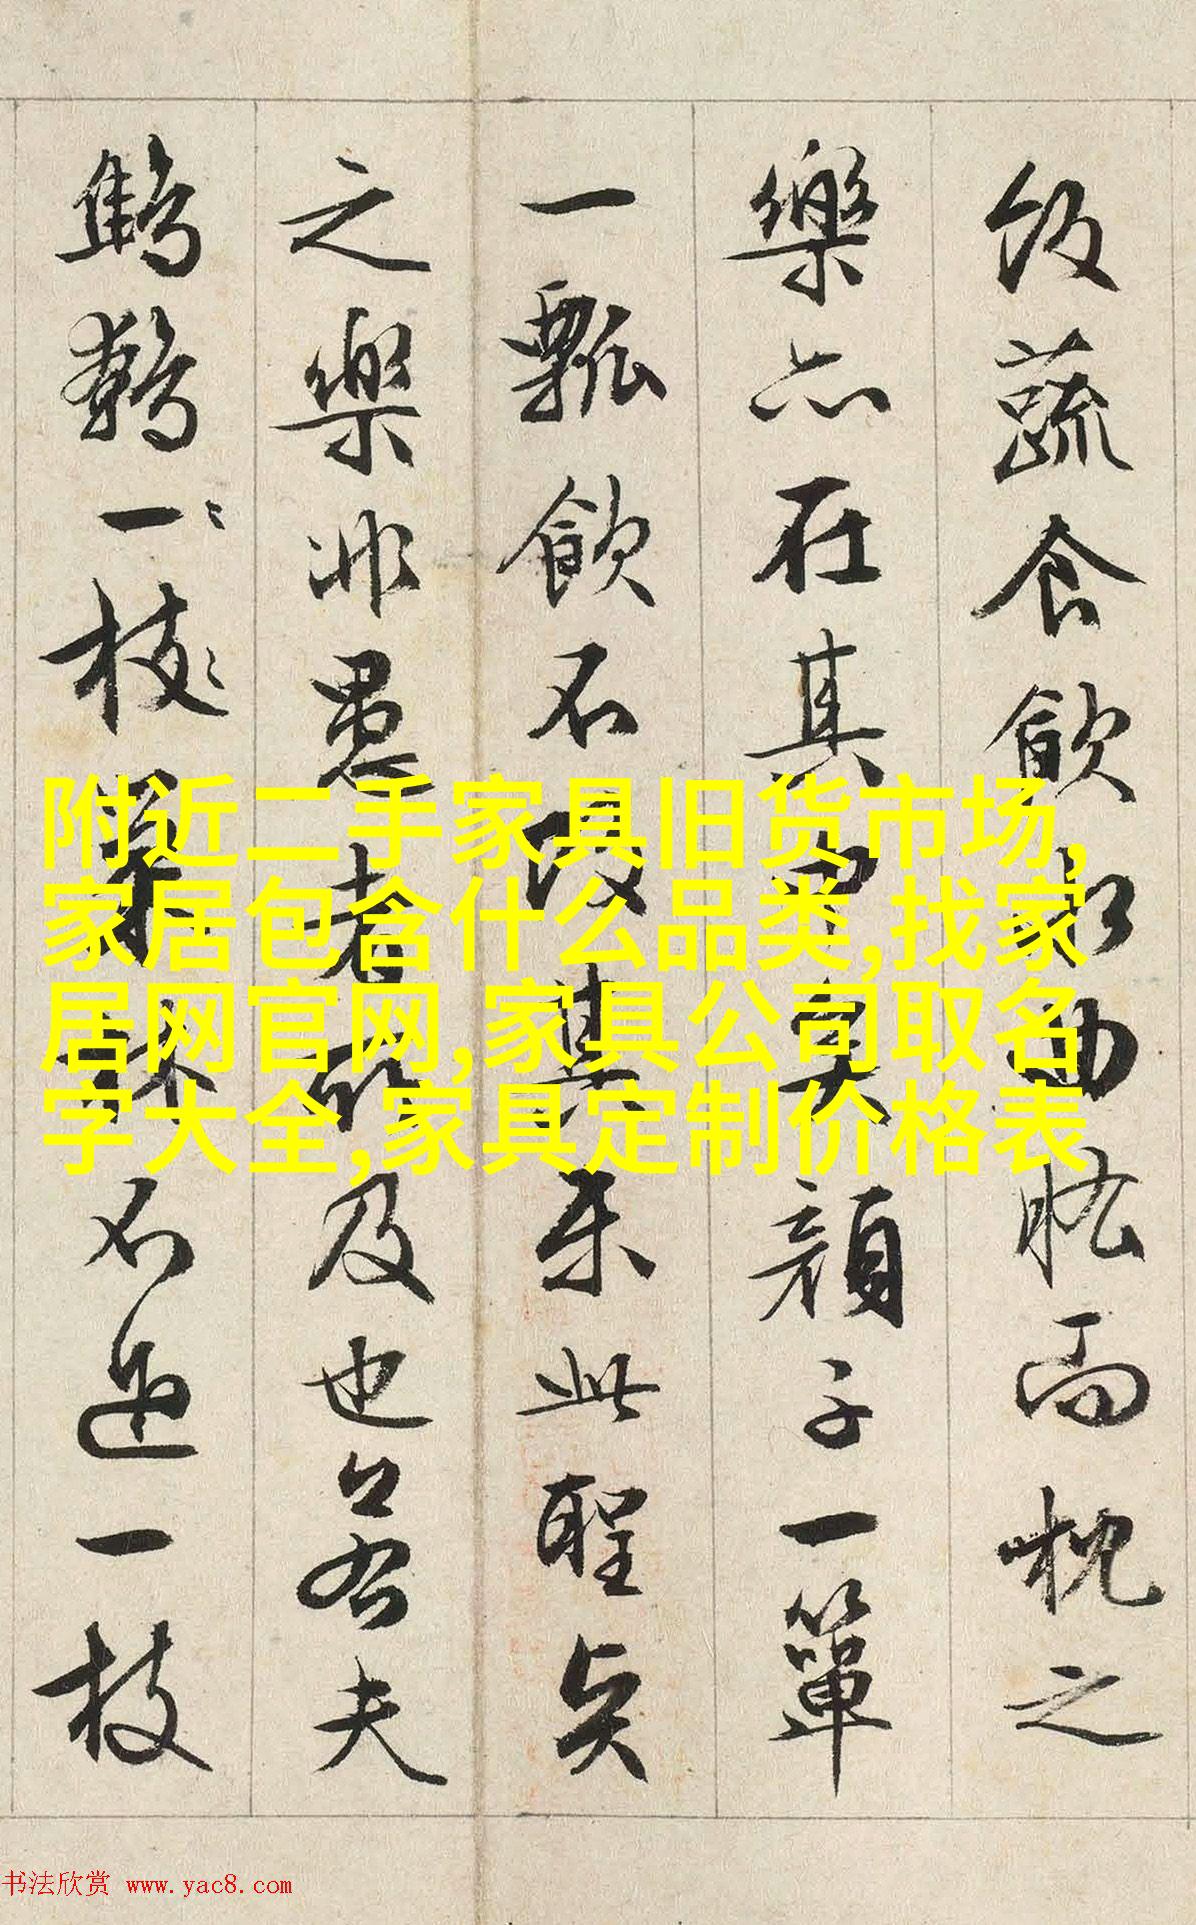 飯蔬食飲水曲肱而枕之
樂亦在其中矣顔子一簞
一瓢飲不改其樂此聖賢
之樂非愚者所及也若夫
鷦鷯一〻枝〻巢林不过一枝
附近二手家具旧货市场,
家居包含什么品类,找家
居网官网,家具公司取名
字大全,家具定制价格表
书法欣赏 www.yac8.com